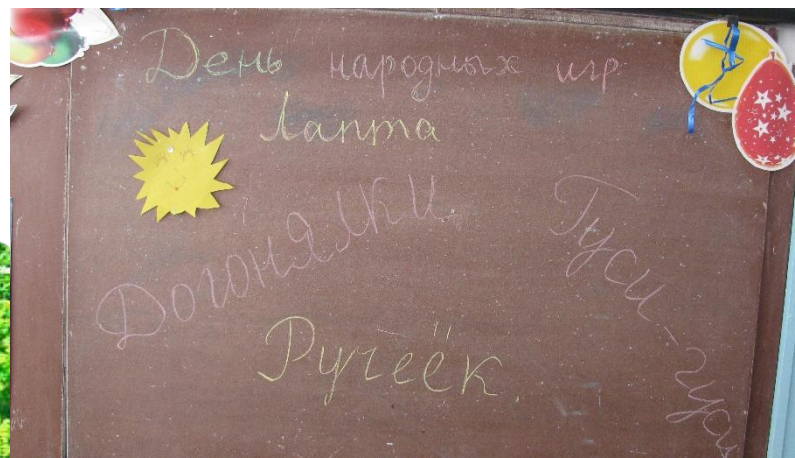 День народных игр
Лапта
Догонялки
Гуси-гуси
Ручеёк.